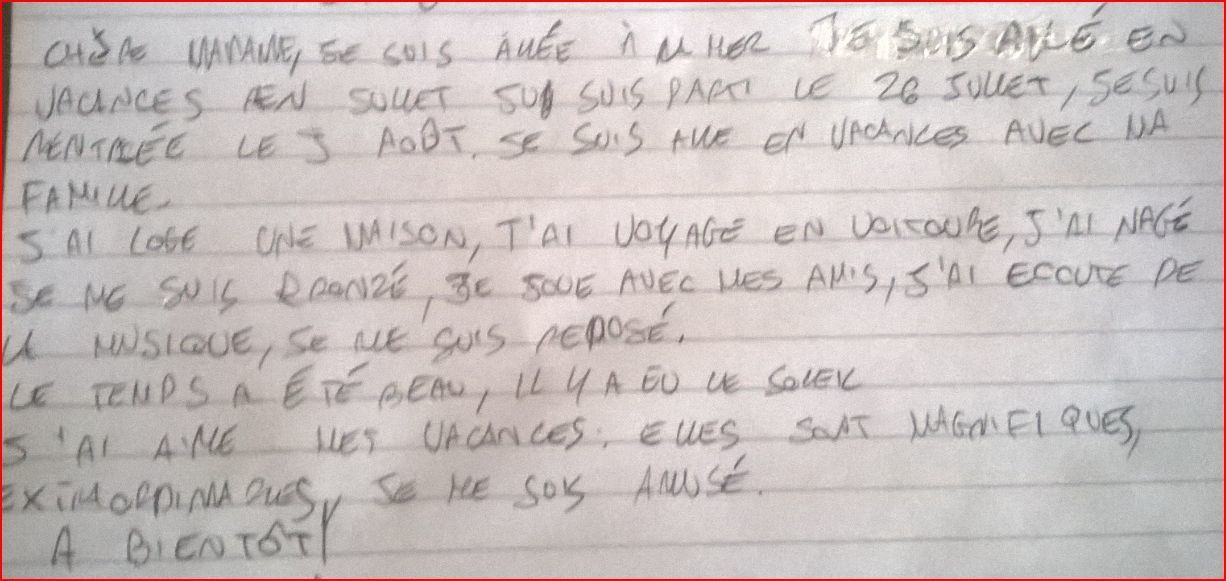 CHÈRE MADAME, JE SUIS ALLÉE À LA MER JE SUIS ALLÉ EN
VACANCES EN JULLET JE SUIS PARTI LE 26 JULLET, JE SUIS
RENTRÉE LE 3 AOÛT. JE SUIS ALLE EN VACANCES AVEC MA
FAMILLE.
J'AI LOGE UNE MAISON, J'AI VOYAGÉ EN VOITOURE, J'AI NAGÉ
JE ME SUIS BRONZÉ, JE JOUE AVEC MES AMIS, J'AI ECOUTE DE
LA MUSIQUE, JE ME SUIS REPOSÉ.
LE TEMPS A ÉTÉ BEAU, IL Y A EU LE SOLEIL
J'AI AIME MES VACANCES. ELLES SONT MAGNIFIQUES,
JE ME SUIS AMUSÉ.
A BIENTÔT!